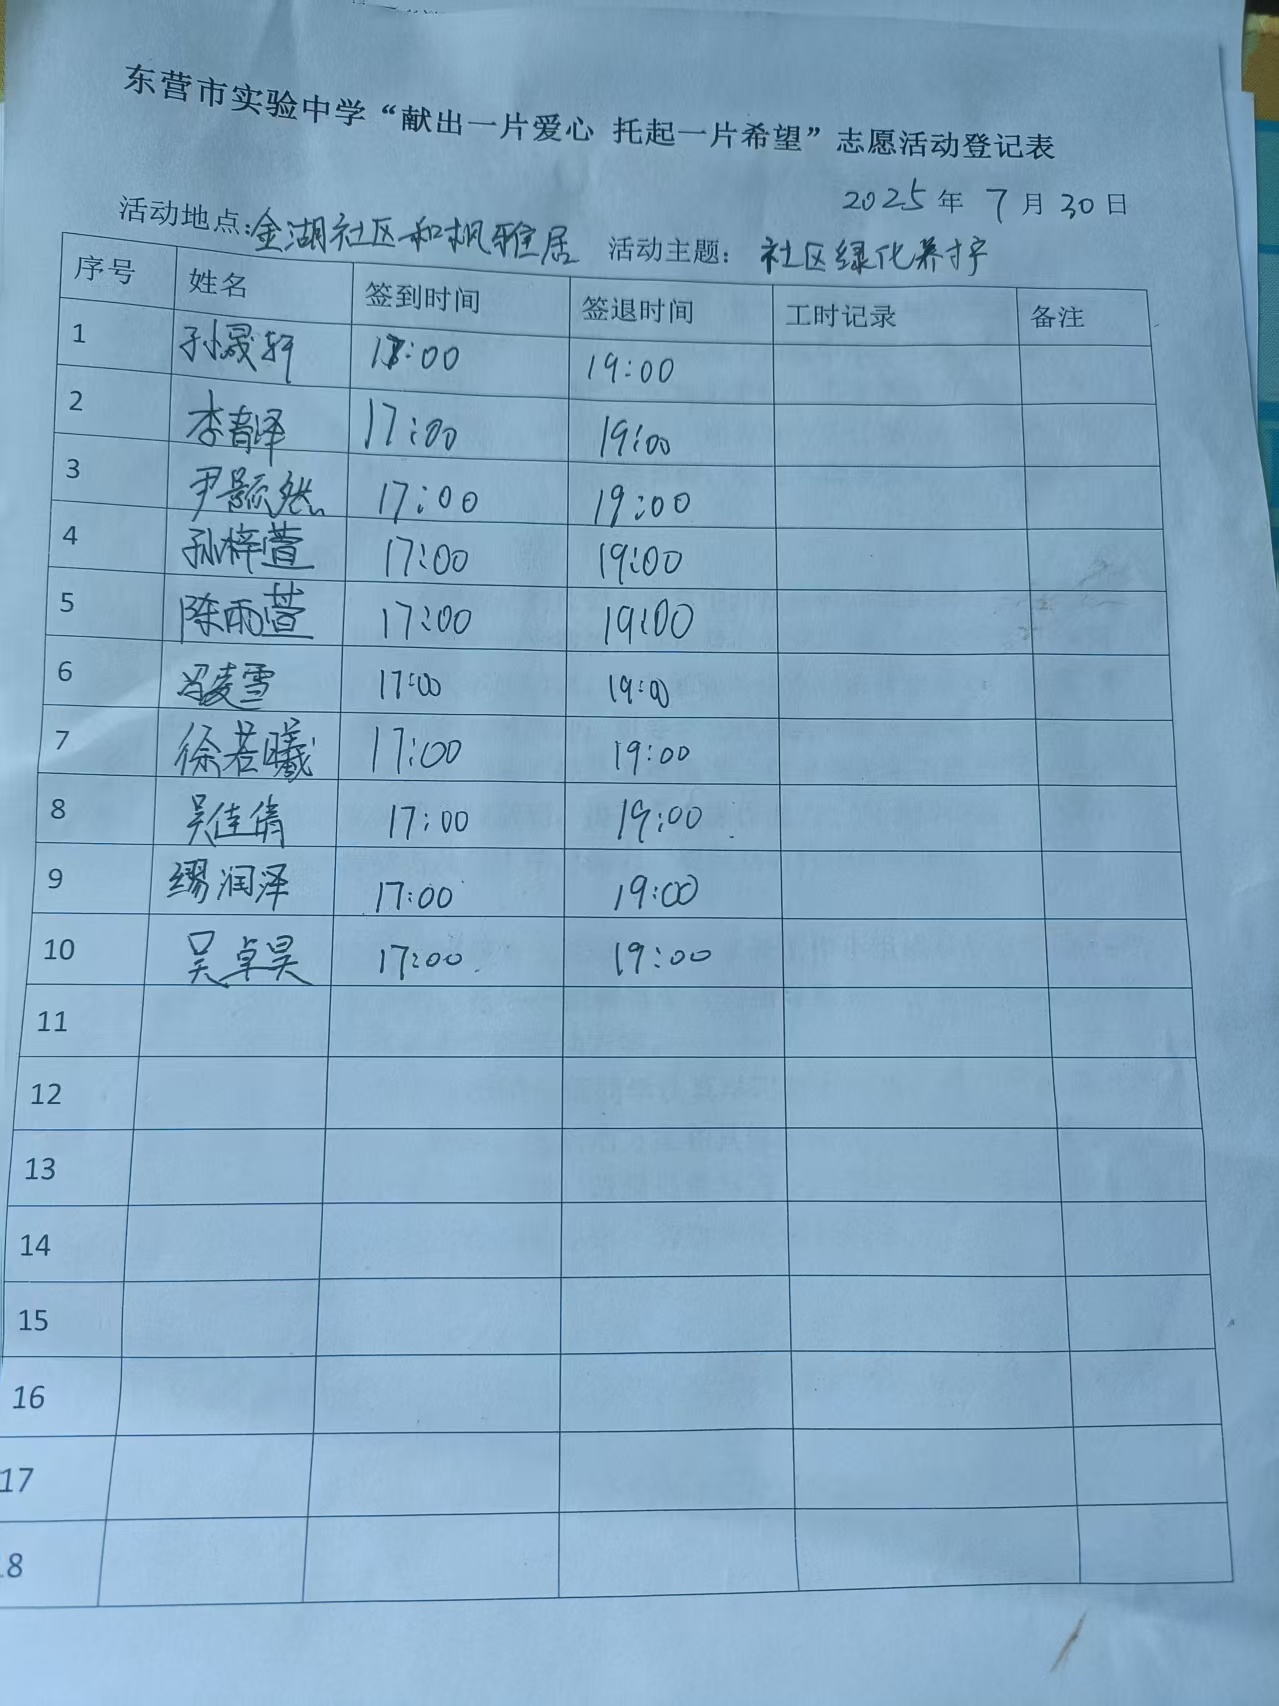 东营市实验中学“献出一片爱心 托起一片希望”志愿活动登记表
2025年 7月30日
活动地点:金湖社区和枫雅居 活动主题：社区绿化养护
序号 姓名 签到时间 签退时间 工时记录 备注
1 孙晟轩 17:00 19:00
2 李春泽 17:00 19:00
3 尹颢然 17:00 19:00
4 孙梓萱 17:00 19:00
5 陈雨萱 17:00 19:00
6 冯凌雪 17:00 19:00
7 徐若曦 17:00 19:00
8 吴佳倩 17:00 19:00
9 缪润泽 17:00 19:00
10 吴卓昊 17:00 19:00
11
12
13
14
15
16
17
18